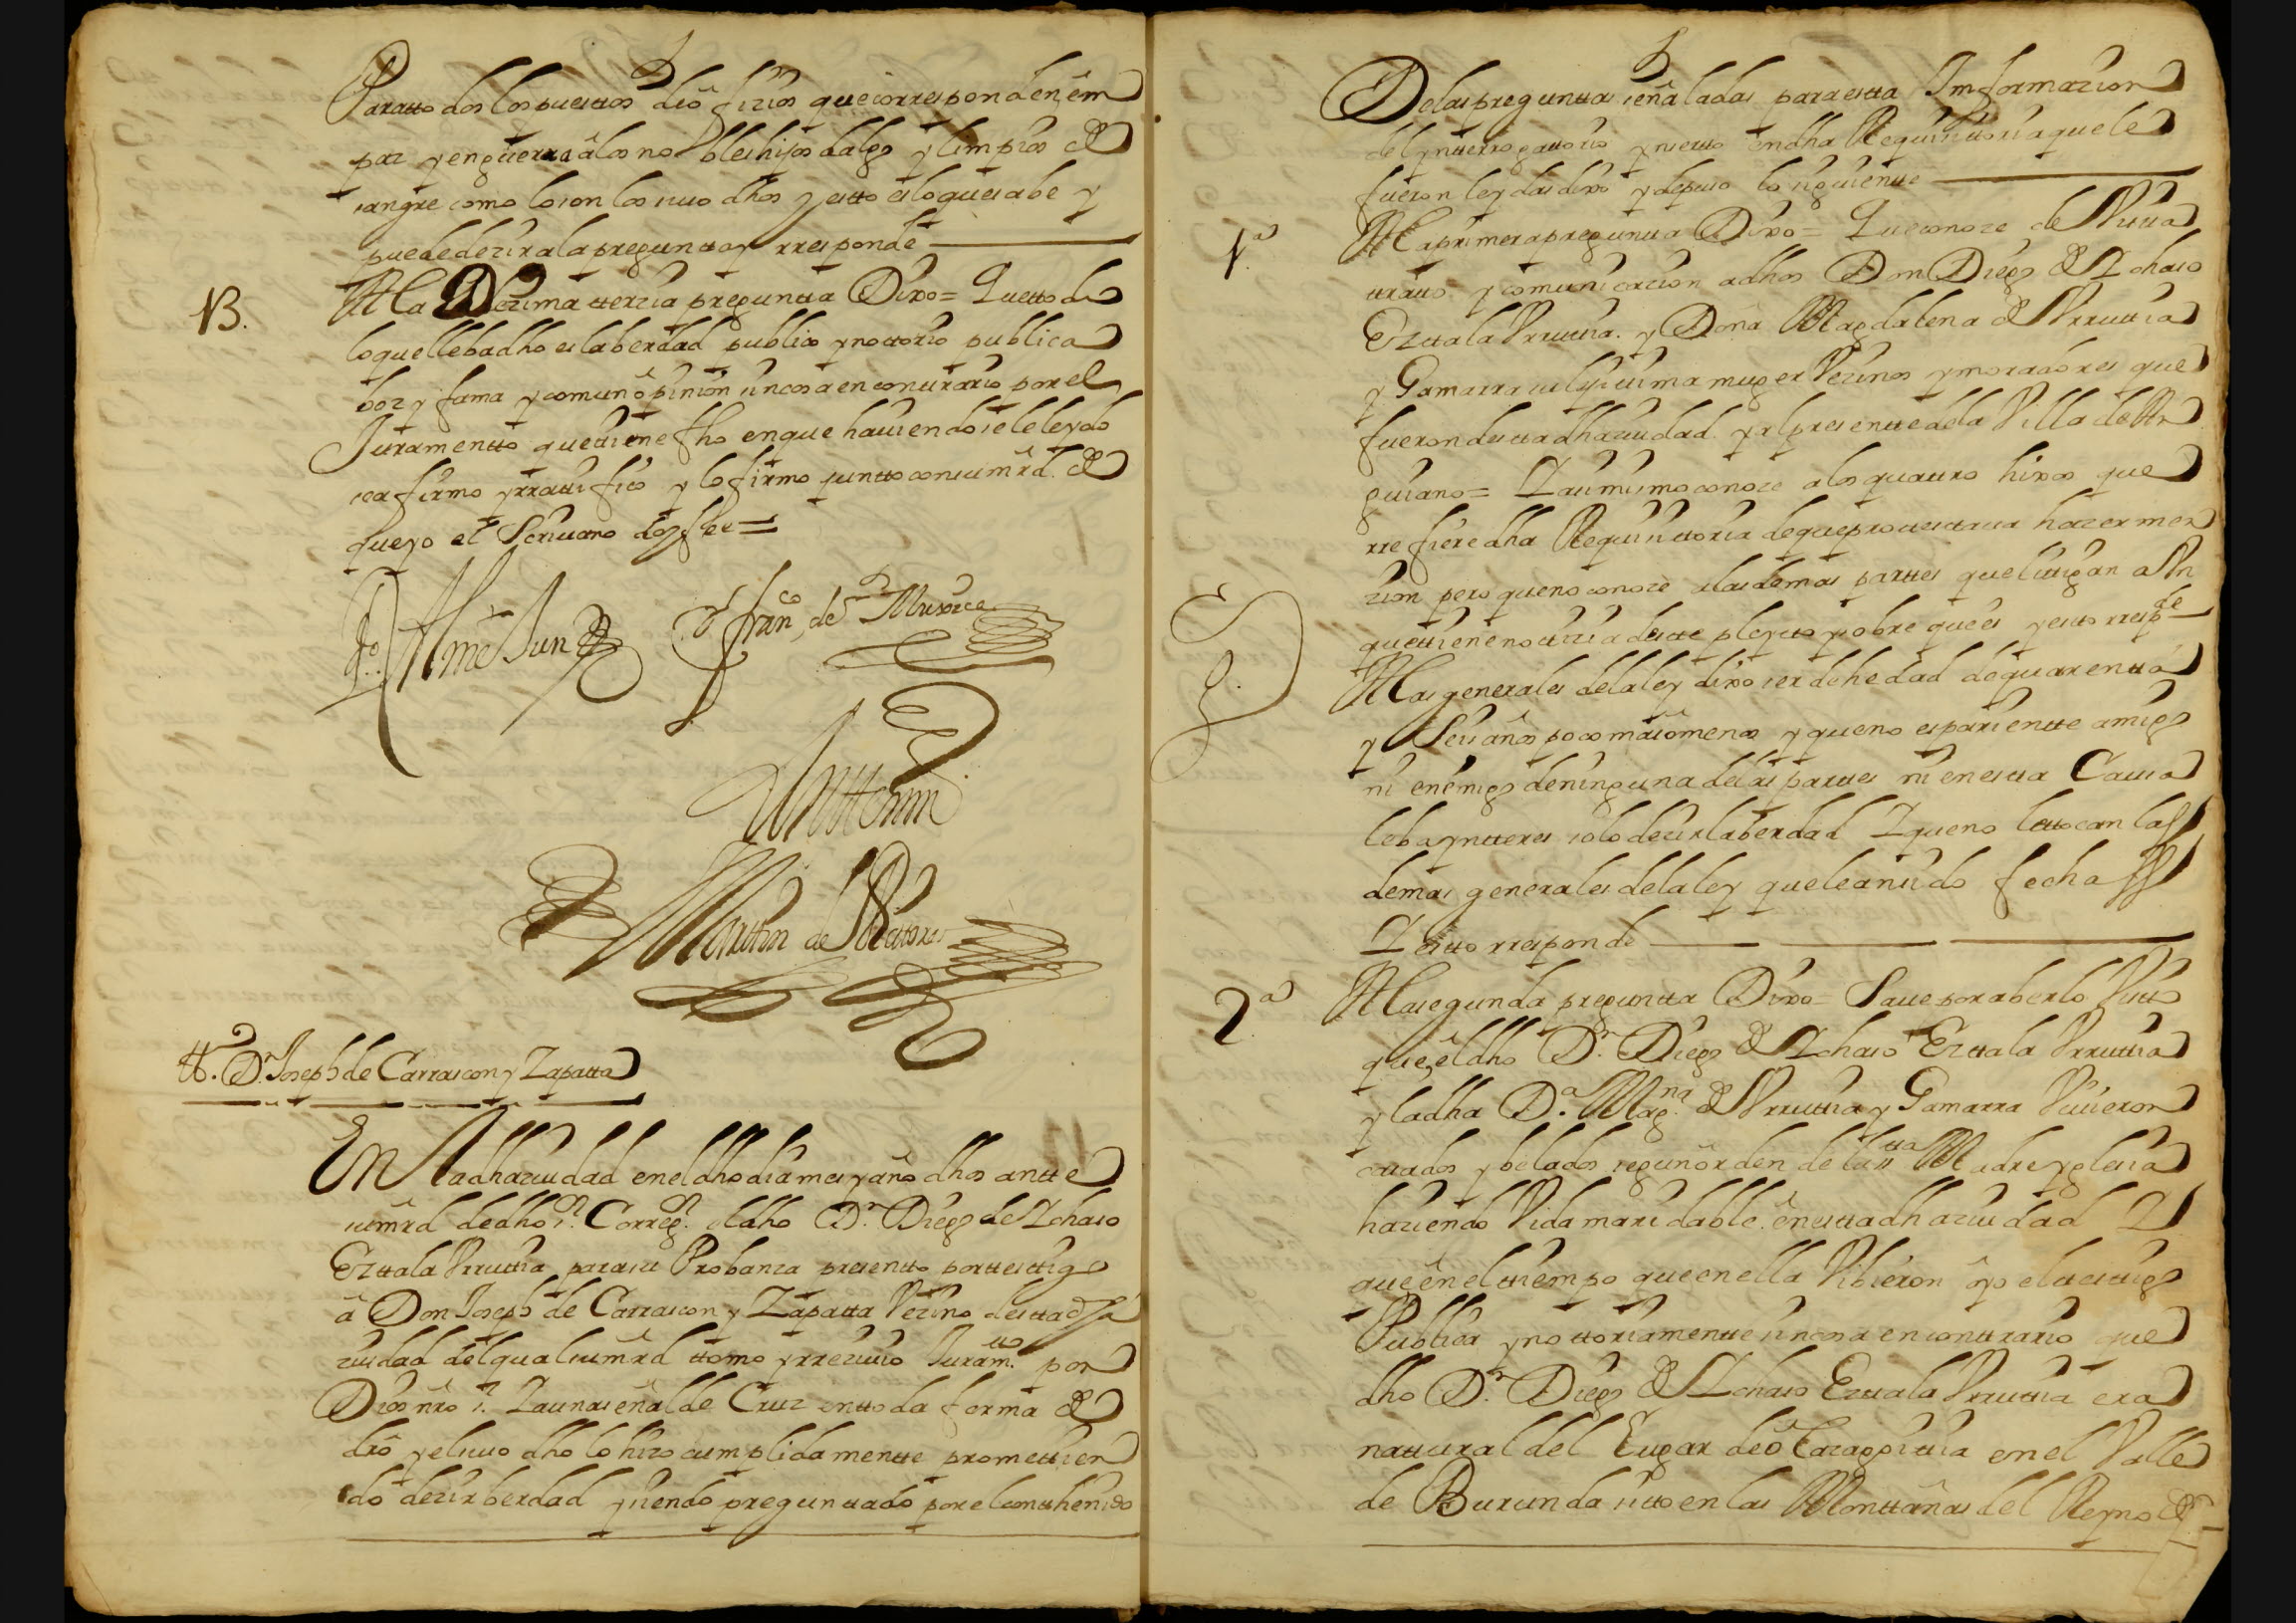 Paratto dos los puestos de ôfizios que corresponden, êm
paz y enguerra âlos nobles hijos dalgo y limpios de
sangre como lo son los suso dhos y esto es lo que sabe y
puede dezir ala pregunta y rresponde
13. Ala Dezima terzia pregunta Dixo = Que todo
lo que lleba dho es la berdad publico y notorio publica
boz y fama y comun ôpinion sin cosa en contrario por el
Juramento que tiene fho en que haviendosele leydo
se afirmo y rratifico y lo firmo junto con su mrd. de
que yo el Scrivano doy fee =
fran.co de Muxica
Antte mi
Martin de Vitores
tt.o D.n Joseph de Carrascon y Zapatta
En la dha ziudad en el dho dia mes y año dhos antte
su mrd de dho s.r Correg.r el dho D.n Diego de Ychaso
Eztala Vrrutia para su Probanza presento por testigo
â Don Joseph de Carrascon y Zapatta Vezino desta dha
ziudad del qual su mrd tomo y rrezivio Juram.to por
Dios nro s.r Y a una señal de Cruz en toda forma de
dro y el suso dho lo hizo cumplidamente prometien
do dezir berdad y siendo preguntado por el conthenido
De las preguntas señaladas para esta Imformazion
del ynterrogatorio ynserto en dha Requisitoria que le
fueron leydas dixo y depuso lo siguiente
1.a A la primera pregunta Dixo = Que conoze de Vista
trato y comunicazion a dhos Don Diego de Ychaso
Eztala Vrrutia. y Doña Magdalena de Vrrutia
y Gamarra su lexitima muger Vezinos y moradores que
fueron desta dha ziudad y al presente de la Villa de An
guiano = Y asimismo conoze a los quatro hixos que
rrefiere dha Requisitoria de que protestava hazer men
zion pero que no conoze a las demas partes que litigan a Un
que tiene notizia deste pleyto y sobre que es y esto rresp.de
A las generales de la ley dixo ser de hedad de quarenta
y Seis años poco mas ô menos y que no es pariente amigo
ni enemigo de ninguna de las partes ni en esta Causa
lleba ynteres solo dezir la berdad Y que no le tocan las
demas generales de la ley que le an sido fechas
Y esto rresponde
2.a A la segunda pregunta Dixo = Save por aberlo Visto
que, êl dho D.n Diego de Ychaso Eztala Vrrutia
y la dha D.a Mag.na de Vrrutia y Gamarra Vivieron
casados y belados segun ôrden de la s.ta Madre yglesia
haziendo Vida maridable. ên esta dha ziudad Y
que ên el tiempo que en ella Vibieron ôyo el testigo
Publica y notoriamente sin cosa en contrario que
dho D.n Diego de Ychaso Eztala Vrrutia era
natural del Lugar de ôlazagoitia en el Valle
de Burunda sito en las Montañas del Reyno de